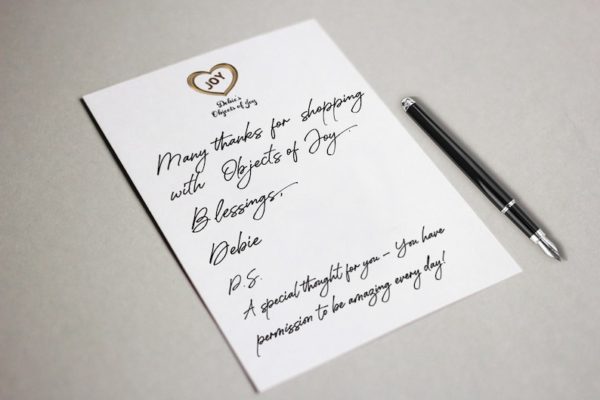 JOY
Debie's
Objects of Joy
Many thanks for shopping
with Objects of Joy.
Blessings,
Debie
P.S.
A special thought for you – You have
permission to be amazing every day!